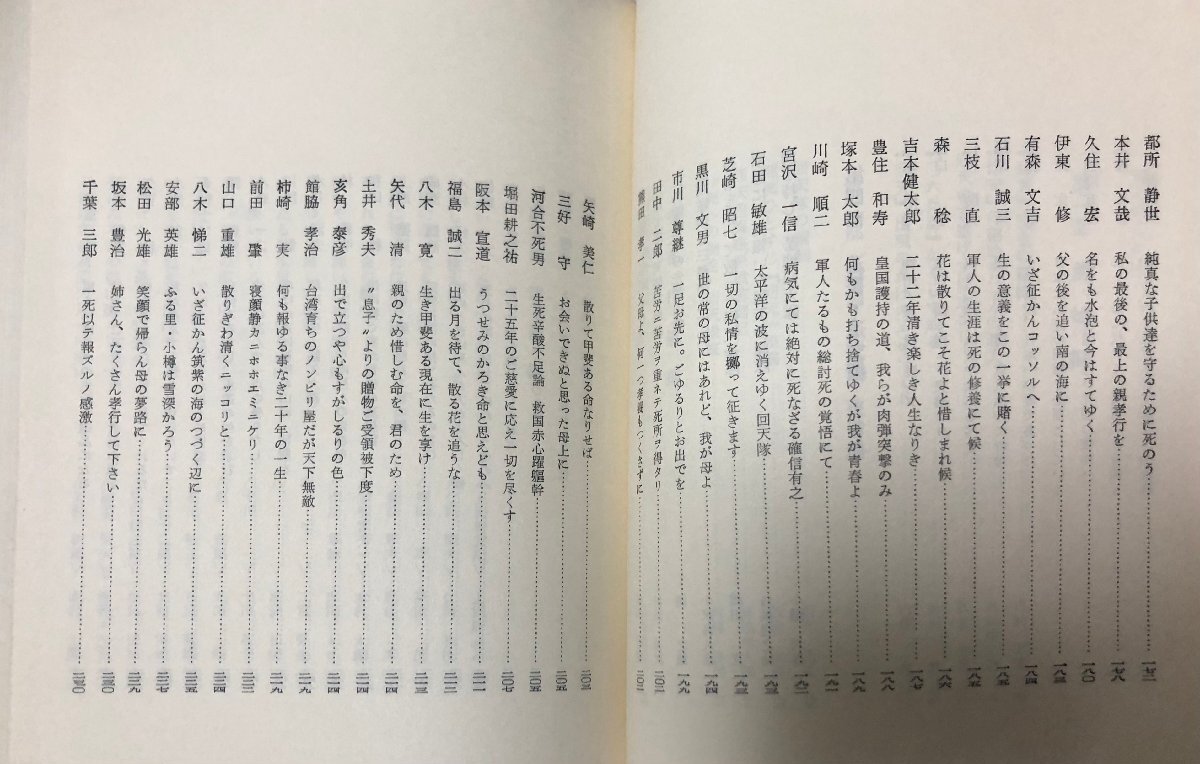 都所　静世　純真な子供達を守るために死のう……………一七二
本井　文哉　私の最後の、最上の親孝行を……………一七八
久住　宏　名をも水泡と今はすてゆく……………一八〇
伊東　修　父の後を追い南の海に……………
有森　文吉　いざ征かんコッソルへ……………一八四
石川　誠三　生の意義をこの一挙に賭く……………
三枝　直　軍人の生涯は死の修養にて候……………
森　稔　花は散りてこそ花よと惜しまれ候……………
吉本健太郎　二十二年清き楽しき人生なりき……………一八七
豊住　和寿　皇国護持の道、我らが肉弾突撃のみ……………一八八
塚本　太郎　何もかも打ち捨てゆくが我が青春よ……………
川崎　順二　軍人たるもの総討死の覚悟にて……………
宮沢　一信　病気にては絶対に死なざる確信有之……………
石田　敏雄　太平洋の波に消えゆく回天隊……………
芝崎　昭七　一切の私情を擲って征きます……………
黒川　文男　世の常の母にはあれど、我が母よ……………一九四
市川　尊継　一足お先に。どゆるりとお出でを……………
田中　二郎　苦労ニ苦労ヲ重ネテ死所ヲ得タリ……………
孝一　父母よ、何一つ孝養もつくさずに……………
矢崎　美仁　散りて甲斐ある命なりせば……………
三好　守　お会いできぬと思った母上に……………二〇五
河合不死男　生死辛酸不足論　救国赤心躍軀幹……………二〇五
堀田耕之祐　二十五年のご慈愛に応え一切を尽くす……………二〇七
阪本　宣道　うつせみのかろき命と思えども……………二一一
福島　誠二　出る月を待て、散る花を追うな……………二一二
八木　寛　生き甲斐ある現在に生を享け……………
矢代　清　親のため惜しむ命を、君のため……………
土井　秀夫　〝息子〟よりの贈物ご受領被下度……………
亥角　泰彦　出で立つや心もすがしるりの色……………二二四
館脇　孝治　台湾育ちのノンビリ屋だが天下無敵……………二二四
柿崎　実　何も報ゆる事なき二十年の一生……………
前田　肇　寝顔静カニホホエミニケリ……………
山口　重雄　散りぎわ清くニッコリと……………
八木　悌二　いざ征かん筑紫の海のつづく辺に……………
安部　英雄　ふる里・小樽は雪深かろう……………二二七
松田　光雄　笑顔で帰らん母の夢路に……………
坂本　豊治　姉さん、たくさん孝行して下さい……………
千葉　三郎　一死以テ報ズルノ感激……………